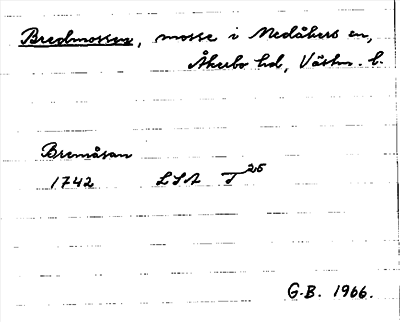 Bredmossen, mosse i Medåkers sn,
Åkerbo hd, Västm. l.
Bremåsan
1742 LSA T 25
G.B. 1966.